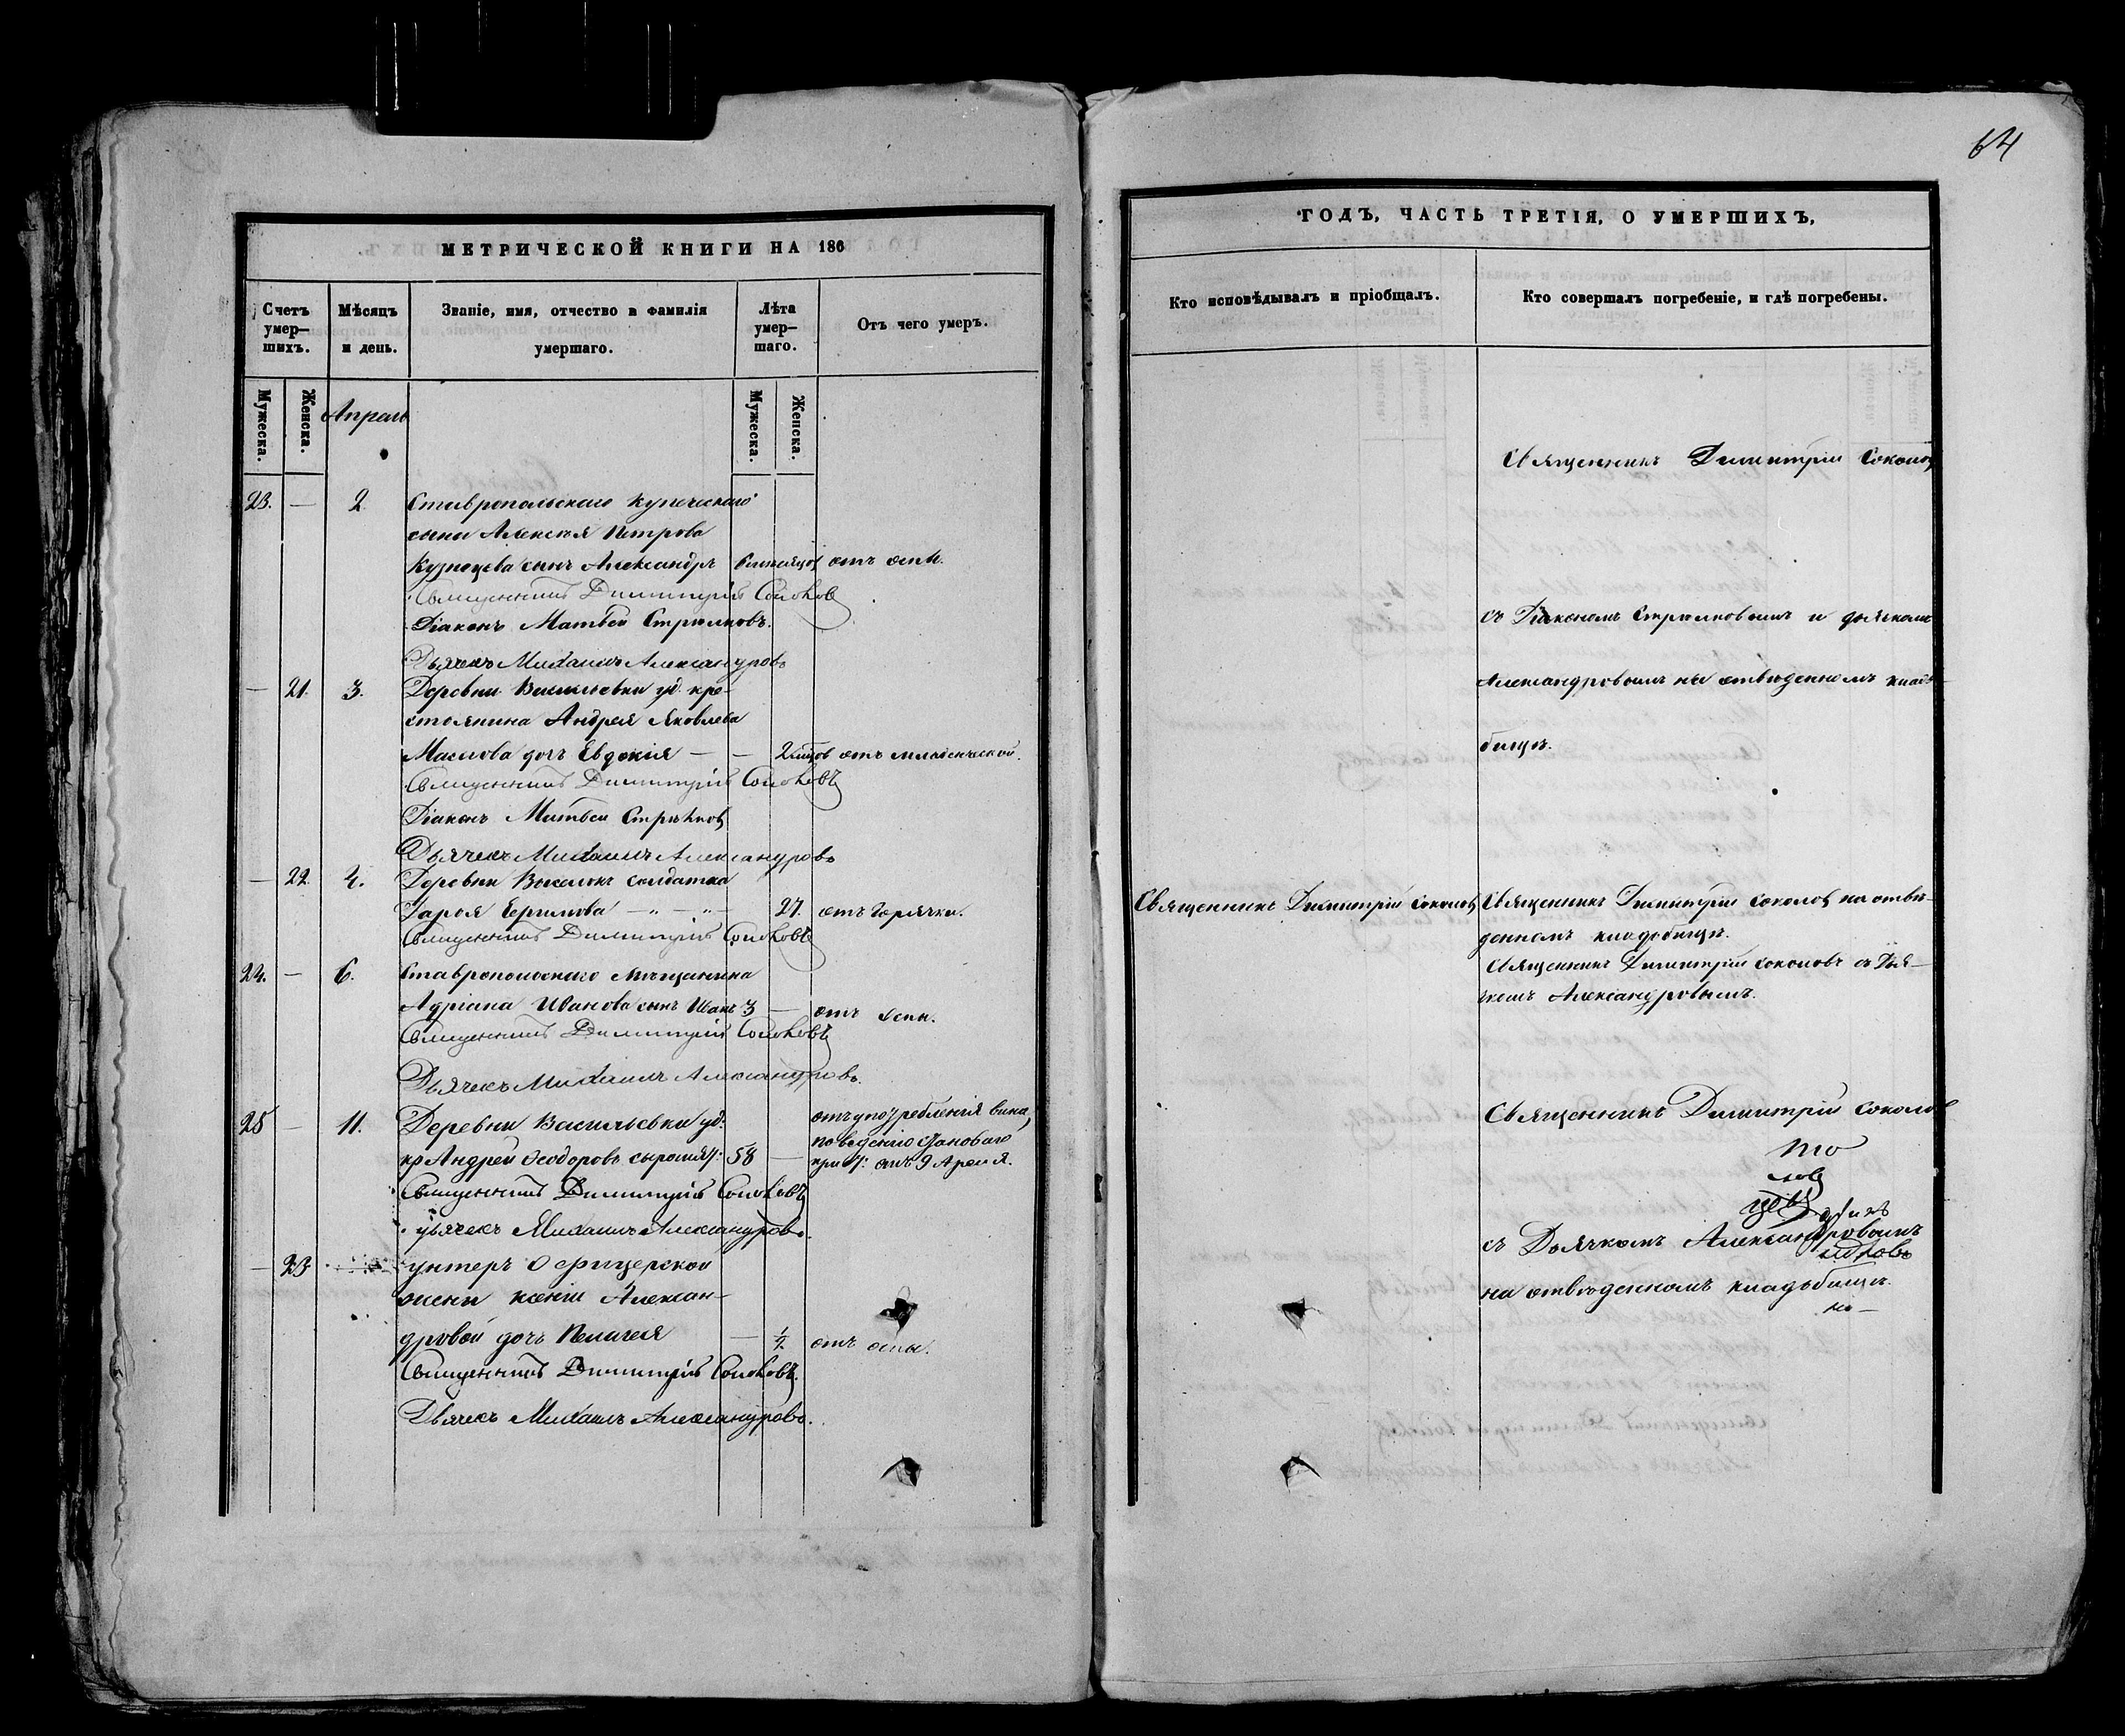 64
МЕТРИЧЕСКОЙ КНИГИ НА 186
Счетъ умер— шихъ.
Мѣсяцъ и день.
Званіе, имя, отчество и фамилія умершаго.
Лѣта умер— шаго.
Отъ чего умеръ.
Мужеска.
Женска.
Апрель
Мужеска.
Женска.
23. — 2. Ставропольскаго купеческаго
сына Алексѣя Петрова
Кузнецова сынъ Александръ отъ оспы.
Священникъ Димитрій Соколовъ
Діаконъ Матвѣй Стрѣлковъ.
Дьячекъ Михаилъ Александровъ
— 21. 3. Деревни Васильевки уд. кре-
стьянина Андрея Яковлева
Маслова дочь Евдокія — — 2 отъ младенческой.
Священникъ Димитрій Соколовъ
Діаконъ Матвѣй Стрѣлковъ
Дьячекъ Михаилъ Александровъ
— 22. 4. Деревни Выселокъ солдатка
Дарья Ермилова — „ — „ — 27. отъ горячки.
Священникъ Димитрій Соколовъ
24. — 6. Ставропольскаго мѣщанина
Адріана Иванова сынъ Иванъ 3 — отъ оспы.
Священникъ Димитрій Соколовъ
Дьячекъ Михаилъ Александровъ.
25 — 11. Деревни Васильевки уд.
кр Андрей Ѳеодоровъ 58 —
отъ употребленія вина,
9 Апреля.
Священникъ Димитрій Соколовъ
Дьячекъ Михаилъ Александровъ.
— 23 унтеръ Офицерской
жены Ксеніи Алексан-
дровой дочь Пелагея — ½ отъ оспы.
Священникъ Димитрій Соколовъ.
Дьячекъ Михаилъ Александровъ.
ГОДЪ, ЧАСТЬ ТРЕТІЯ, О УМЕРШИХЪ,
Кто исповѣдывалъ и пріобщалъ.
Кто совершалъ погребеніе, и гдѣ погребены.
Священникъ Димитрій Соколовъ
съ Діакономъ Стрѣлковымъ и дьячкомъ
Александровымъ на отведенномъ клад-
бищѣ.
Священникъ Димитрій Соколовъ
Священникъ Димитрій Соколовъ на отве-
денномъ кладбищѣ.
Священникъ Димитрій Соколовъ съ Дья-
чкомъ Александровымъ.
Священникъ Димитрій Соколов
съ Дьячкомъ Александровымъ
на отведенномъ кладбищѣ.